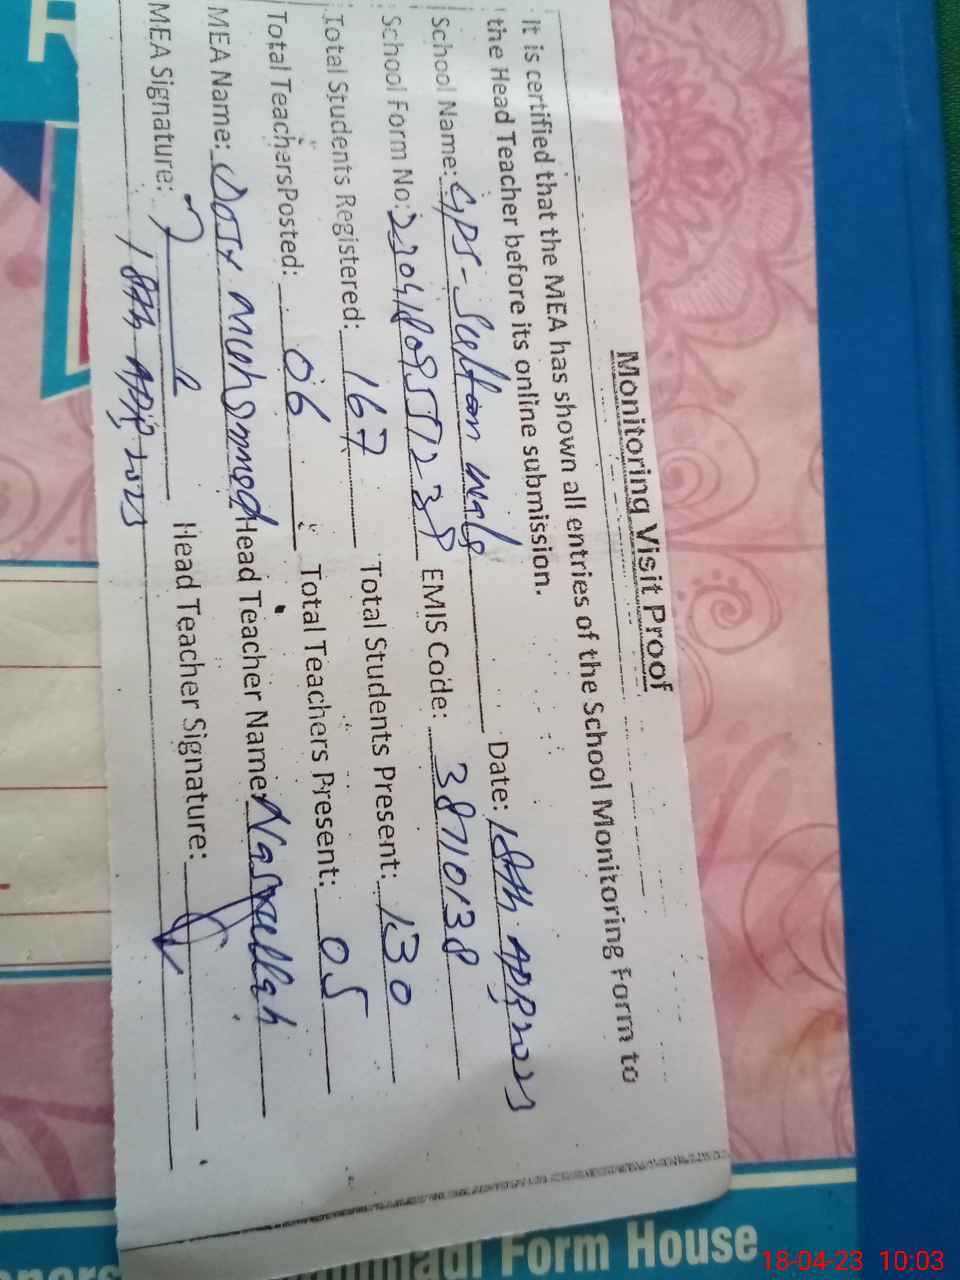 Monitoring Visit Proof
It is certified that the MEA has shown all entries of the School Monitoring Form to
the Head Teacher before its online submission.
School Name: GPS - Sultan wala Date: 18th APR 2023
School Form No: EMIS Code: 38710138
Total Students Registered: 167 Total Students Present: 130
Total TeachersPosted: 06 Total Teachers Present: 05
MEA Name: Muhammad Head Teacher Name: Nasrullah
MEA Signature: Head Teacher Signature:
18th APR 2023
Form House
18-04-23 10:03